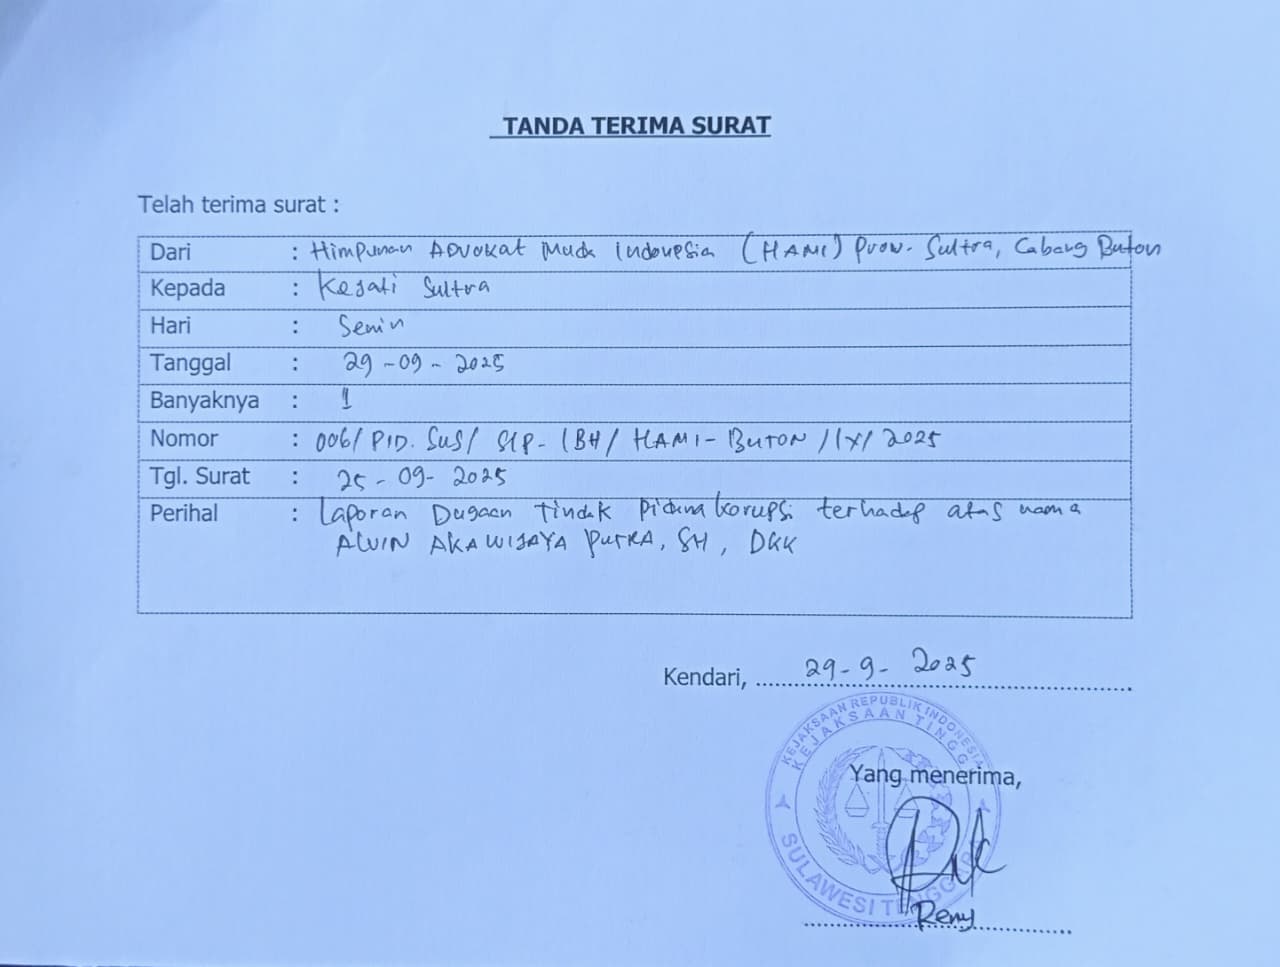 TANDA TERIMA SURAT
Telah terima surat :
Dari : Himpunan ADVOKAT Muda Indonesia (HAMI) Prov. Sultra, Cabang Buton
Kepada : Kejati Sultra
Hari : Senin
Tanggal : 29 - 09 - 2025
Banyaknya : 1
Nomor : 006/ PID. Sus/ SIP- LBH/ HAMI - BUTON /IX/ 2025
Tgl. Surat : 25 - 09 - 2025
Perihal : Laporan Dugaan Tindak Pidana korupsi terhadap atas nama
ALVIN AKAWIJAYA PUTRA, SH, DKK
Kendari, 29 - 9 - 2025
KEJAKSAAN REPUBLIK INDONESIA
KEJAKSAAN TINGGI
Yang menerima,
SULAWESI TENGGARA
Reny